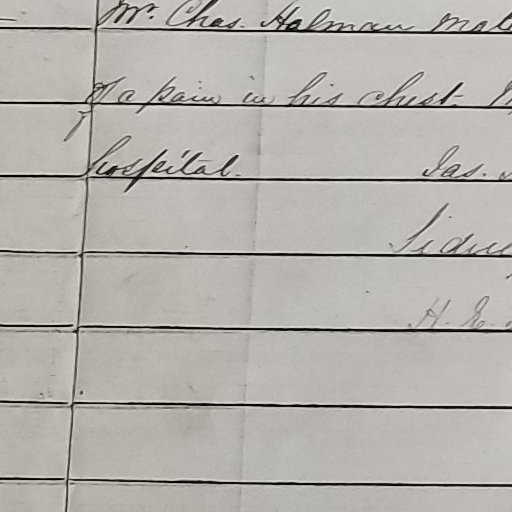 Mr. Chas. Halman Mate
of a pain in his chest.
hospital. Jas.
Sidney
H. E.